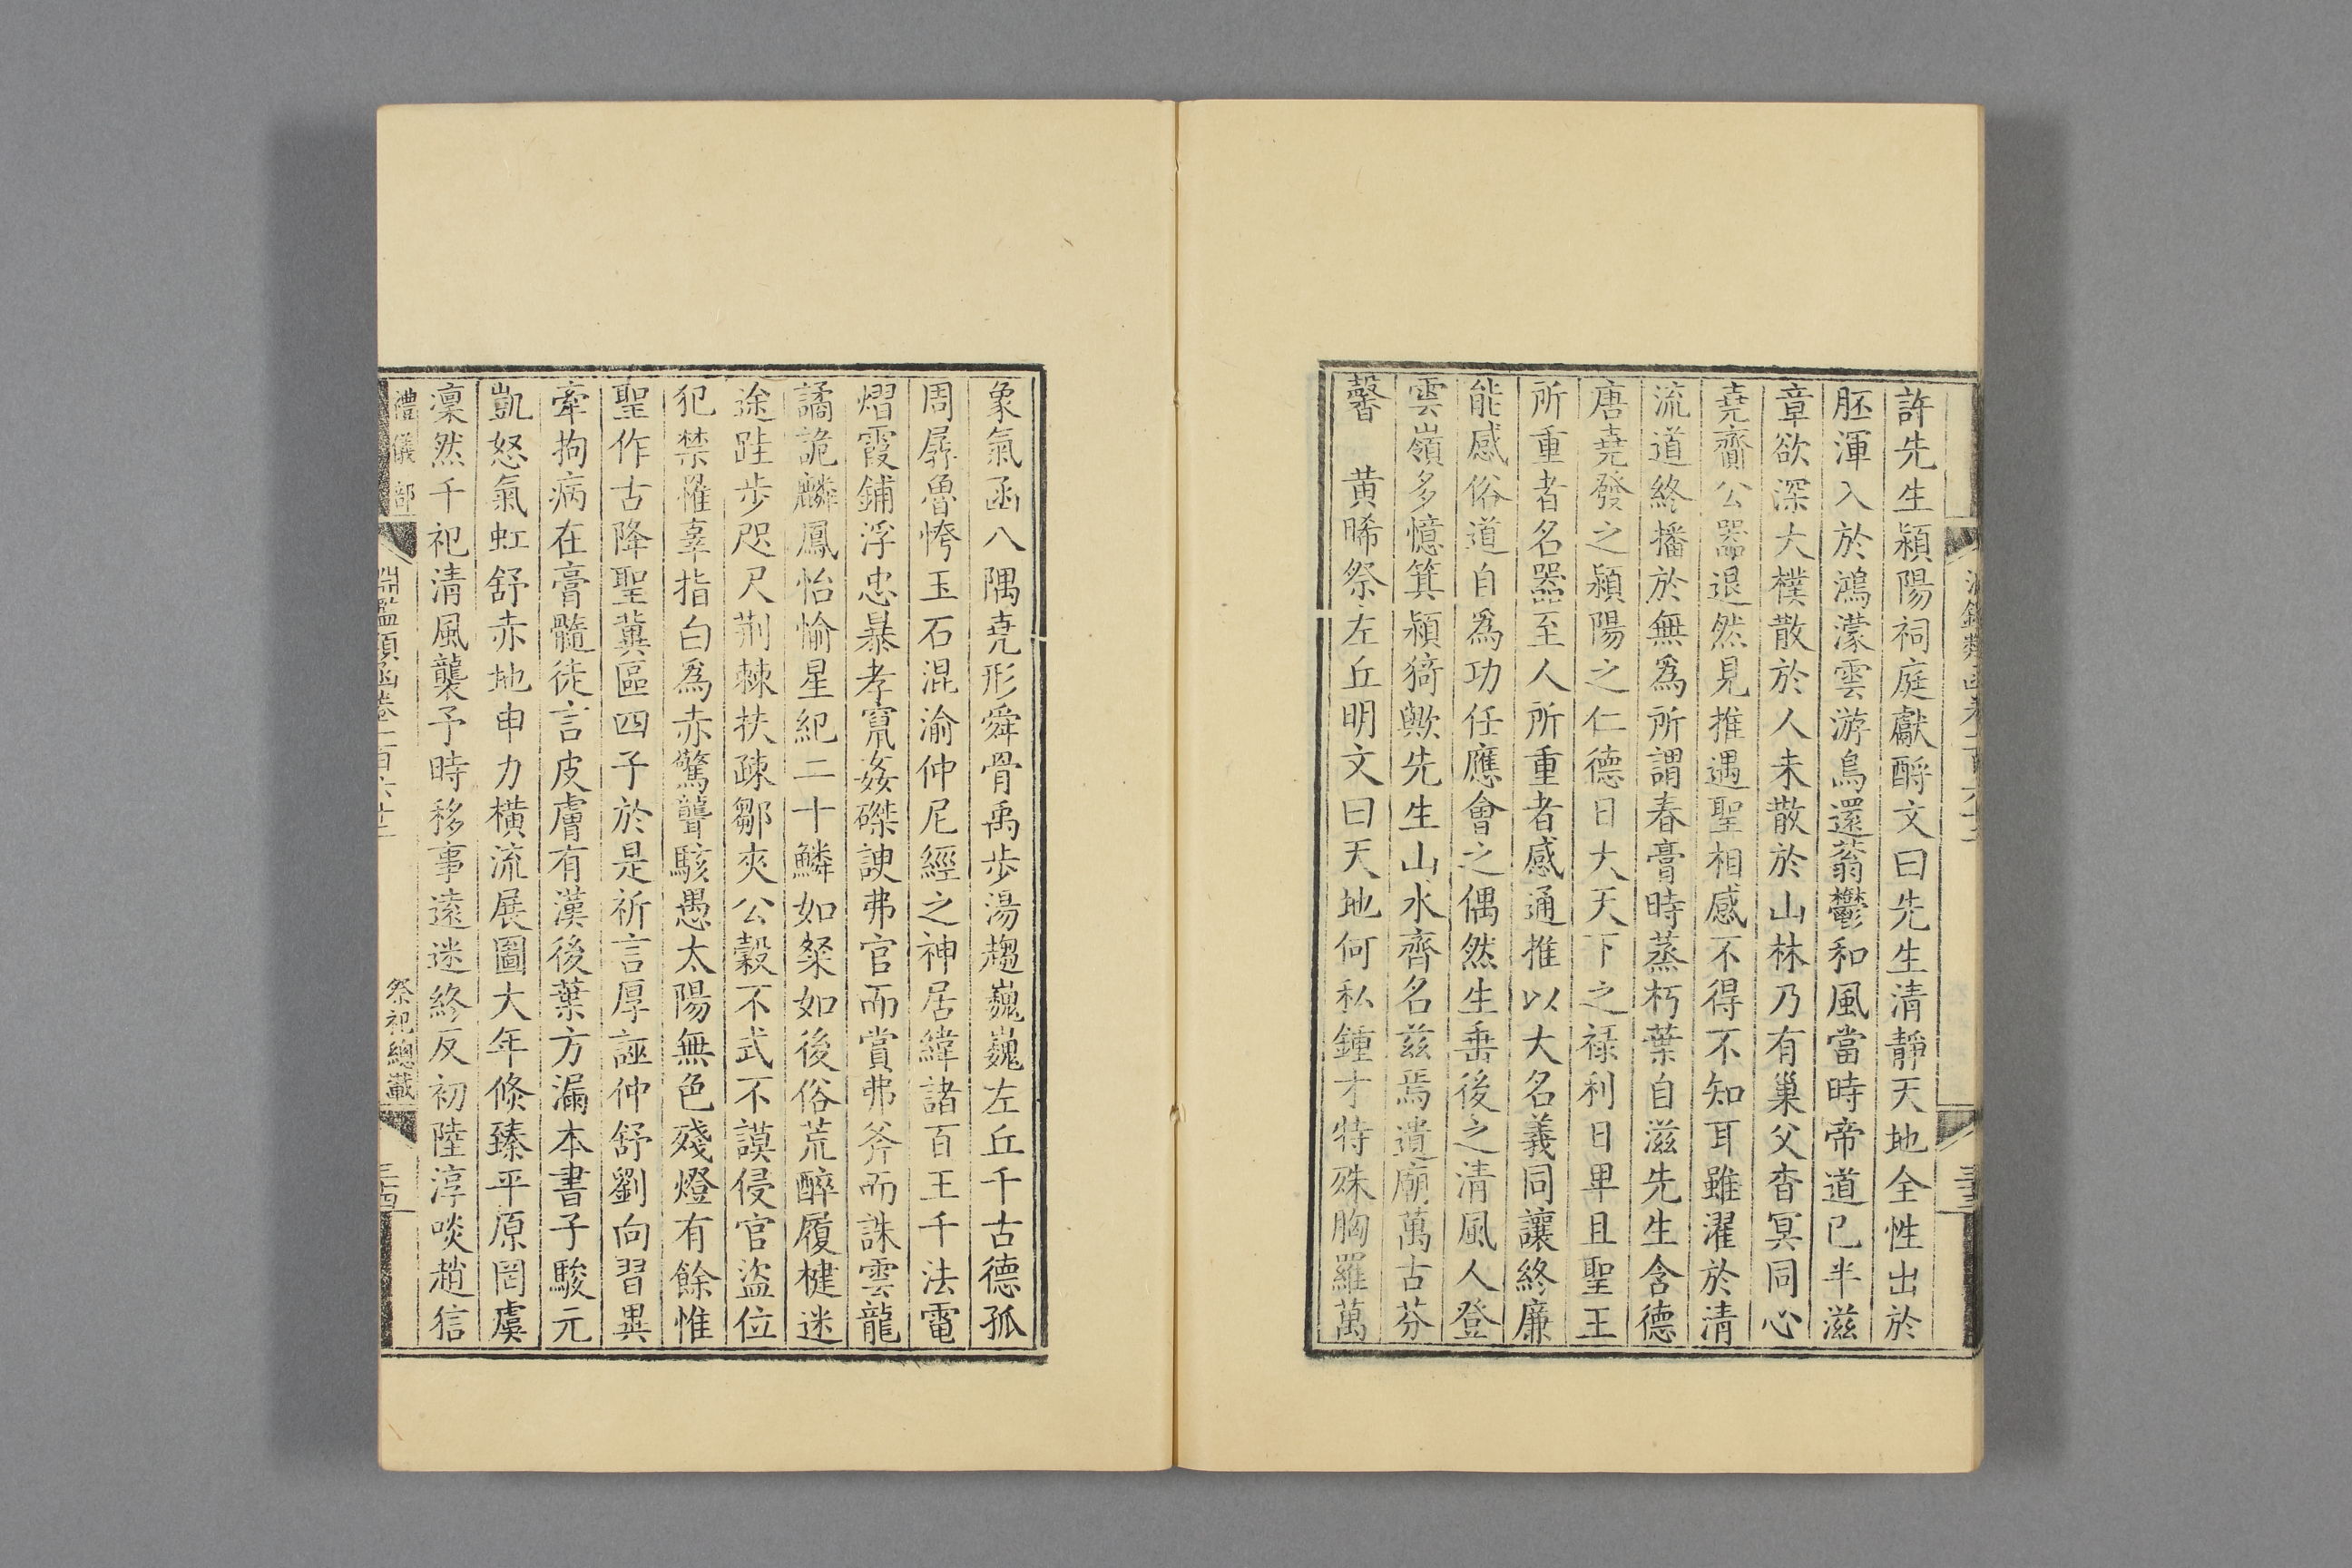 許先生潁陽祠庭獻酹文曰先生清靜天地全性出於
胚渾入於鴻濛雲游鳥還蓊鬱和風當時帝道已半滋
章欲深大樸散於人未散於山林乃有巢父杳冥同心
堯齋公器退然見推遇聖相感不得不知耳雖濯於清
流道終播於無爲所謂春膏時蒸朽葉自滋先生含德
唐堯發之潁陽之仁德日大天下之祿利日卑且聖王
所重者名器至人所重者感通推以大名義同讓終廉
能感俗道自爲功任應會之偶然生垂後之清風人登
雲嶺多憶箕潁猗歟先生山水齊名茲焉遺廟萬古芬
馨　黄晞祭左丘明文曰天地何私鍾才特殊胸羅萬
象氣函八隅堯形舜骨禹步湯趨巍巍左丘千古德孤
周孱魯恗玉石混渝仲尼經之神居緯諸百王千法電
熠霞鋪浮忠暴孝竄姦磔諛弗官而賞弗斧而誅雲龍
譎詭麟鳳怡愉星紀二十鱗如粲如後俗荒醉履楗迷
途跬步咫尺荆棘扶疎鄒夾公穀不式不謨侵官盜位
犯禁罹辜指白爲赤驚聾駭愚太陽無色殘燈有餘惟
聖作古降聖冀區四子於是祈言厚誣仲舒劉向習異
牽拘病在膏髓徒言皮膚有漢後葉方漏本書子駿元
凱怒氣虹舒赤地申力橫流展圖大年倏臻平原罔虞
凜然千祀清風襲予時移事遠迷終反初陸淳啖趙信
禮儀部　淵鑑類函卷一百六十三　祭祀總載　三十四